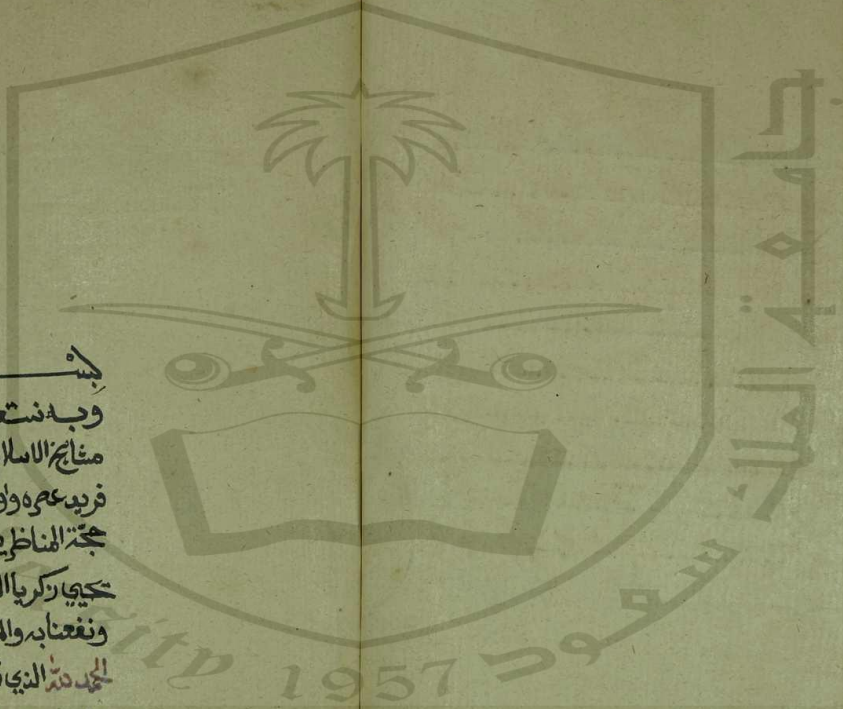 بسـ
وبه نستعـ
مشايخ الاسلا
فريد عصره واو
حجّة المناظريـ
يحيي زكريا ا
ونفعنا به والمـ
الحمد لله الذي
جامعة الملك سعود
1957